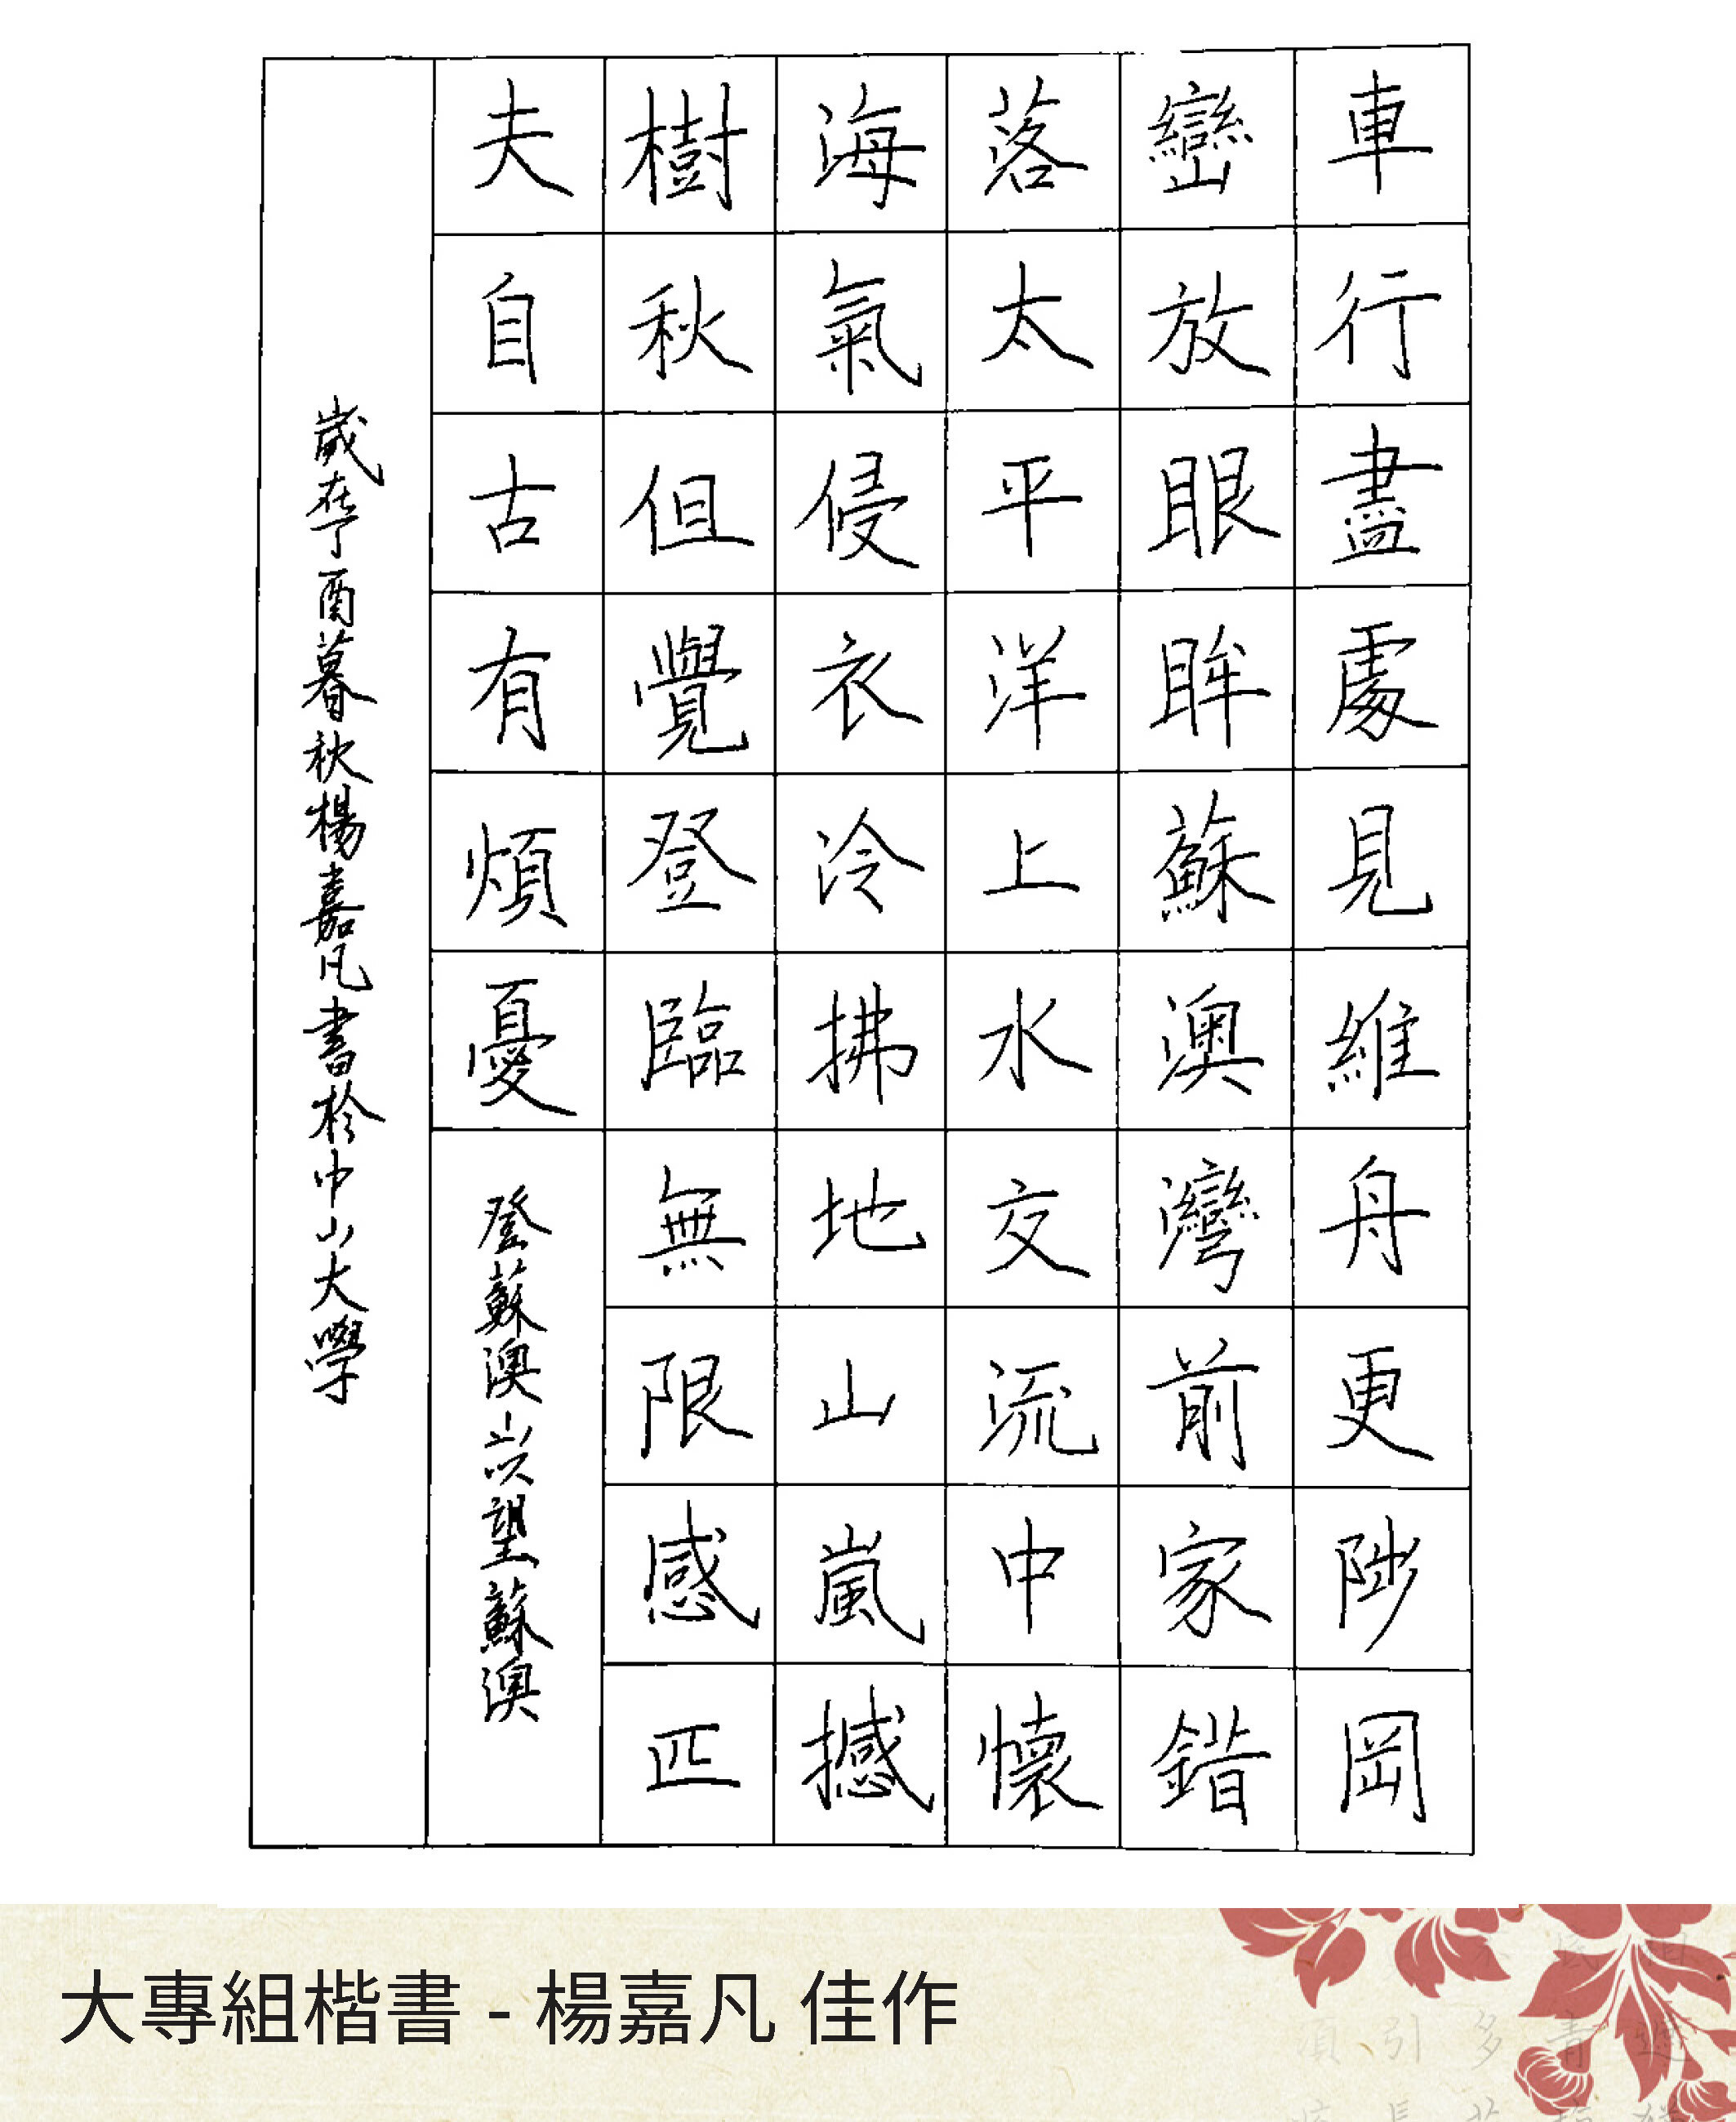 車行盡處見維舟更陟岡
巒放眼眸蘇澳灣前家錯
落太平洋上水交流中懷
海氣侵衣冷拂地山嵐撼
樹秋但覺登臨無限感匹
夫自古有煩憂
登蘇澳山以望蘇澳
歲在丁酉暮秋楊嘉凡書於中山大學
大專組楷書 - 楊嘉凡 佳作